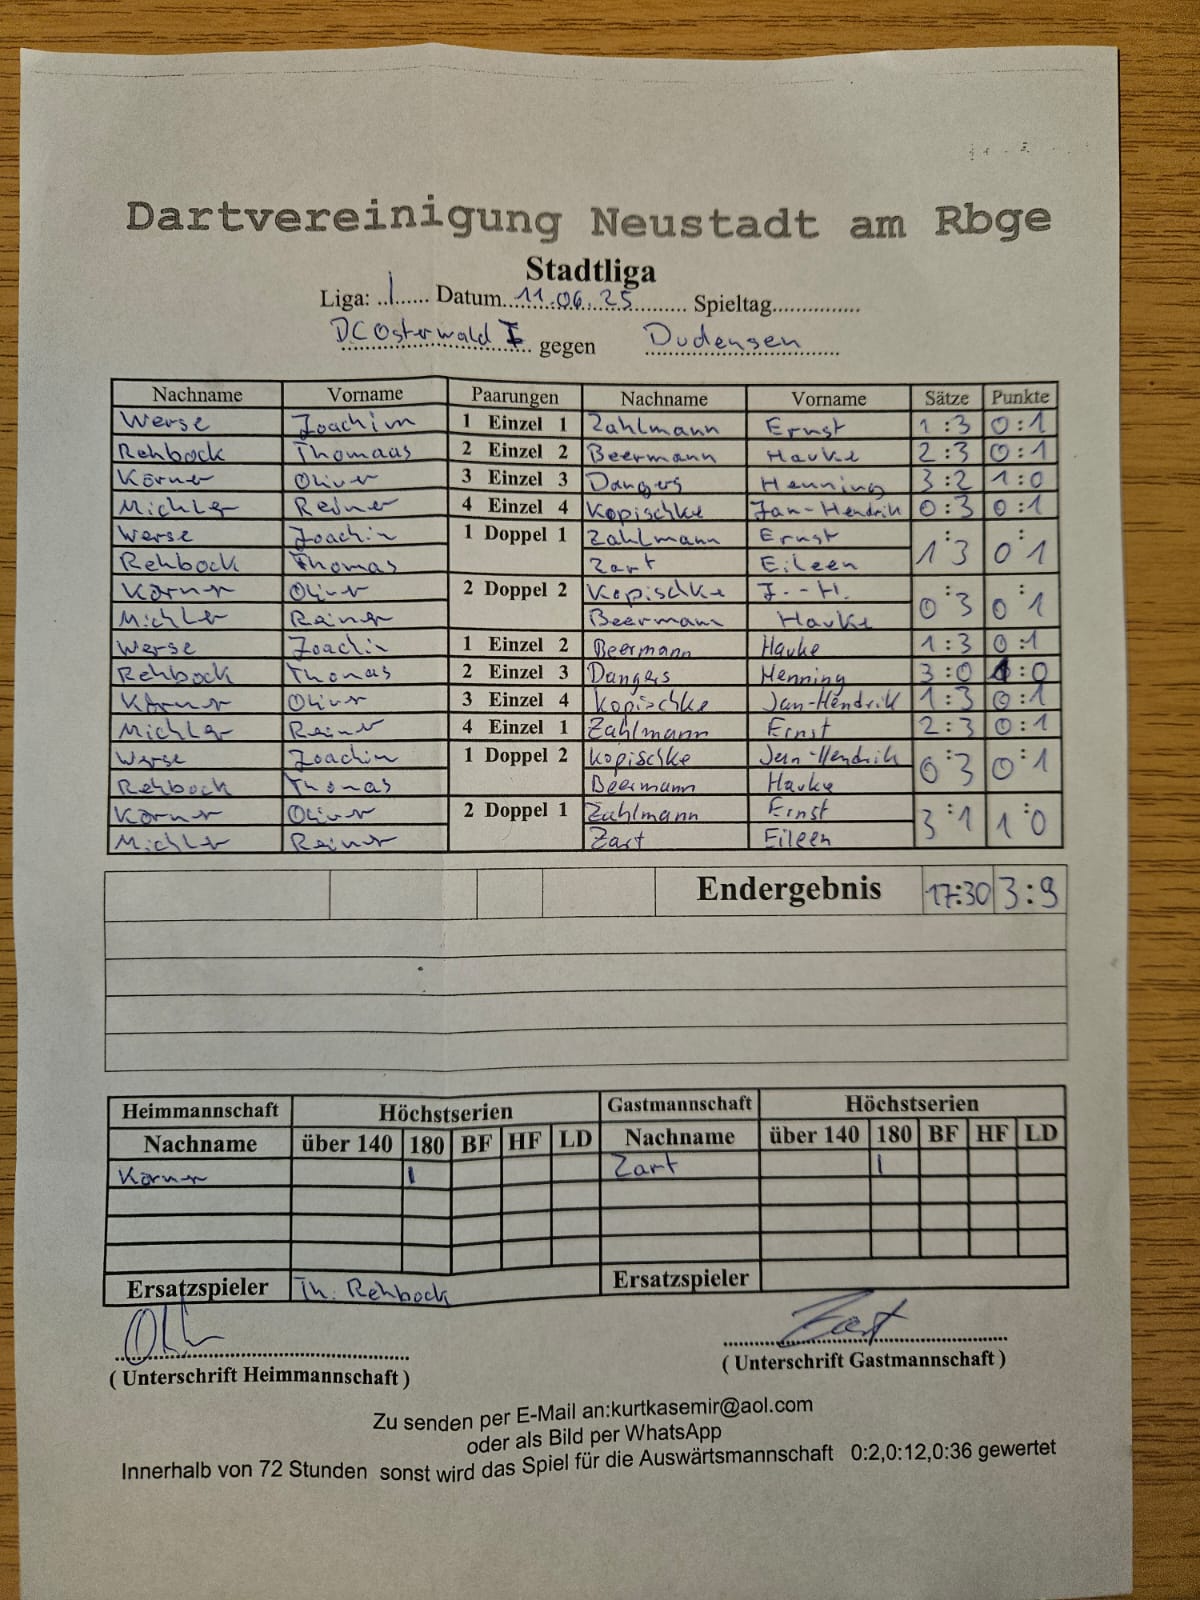 Dartvereinigung Neustadt am Rbge
Stadtliga
Liga: ..1...... Datum..11.06.25.......... Spieltag...............
DC Osterwald I gegen Dudensen
Nachname Vorname Paarungen Nachname Vorname Sätze Punkte
Werse Joachim 1 Einzel 1 Zahlmann Ernst 1:3 0:1
Rehbock Thomaas 2 Einzel 2 Beermann Hauke 2:3 0:1
Körner Oliver 3 Einzel 3 Dangers Henning 3:2 1:0
Michler Reiner 4 Einzel 4 Kopischke Jan-Hendrik 0:3 0:1
Werse Joachim 1 Doppel 1 Zahlmann Ernst 1:3 0:1
Rehbock Thomas Zart Eileen
Körner Oliver 2 Doppel 2 Kopischke J.-H. 0:3 0:1
Michler Reiner Beermann Hauke
Werse Joachim 1 Einzel 2 Beermann Hauke 1:3 0:1
Rehbock Thomas 2 Einzel 3 Dangers Henning 3:0 1:0
Körner Oliver 3 Einzel 4 Kopischke Jan-Hendrik 1:3 0:1
Michler Reiner 4 Einzel 1 Zahlmann Ernst 2:3 0:1
Werse Joachim 1 Doppel 2 Kopischke Jan-Hendrik 0:3 0:1
Rehbock Thomas Beermann Hauke
Körner Oliver 2 Doppel 1 Zahlmann Ernst 3:1 1:0
Michler Reiner Zart Eileen
Endergebnis 17:30 3:9
Heimmannschaft Höchstserien Gastmannschaft Höchstserien
Nachname über 140 180 BF HF LD Nachname über 140 180 BF HF LD
Körner 1 Zart 1
Ersatzspieler Th. Rehbock Ersatzspieler
Zart
( Unterschrift Heimmannschaft ) ( Unterschrift Gastmannschaft )
Zu senden per E-Mail an:kurtkasemir@aol.com
oder als Bild per WhatsApp
Innerhalb von 72 Stunden sonst wird das Spiel für die Auswärtsmannschaft 0:2,0:12,0:36 gewertet